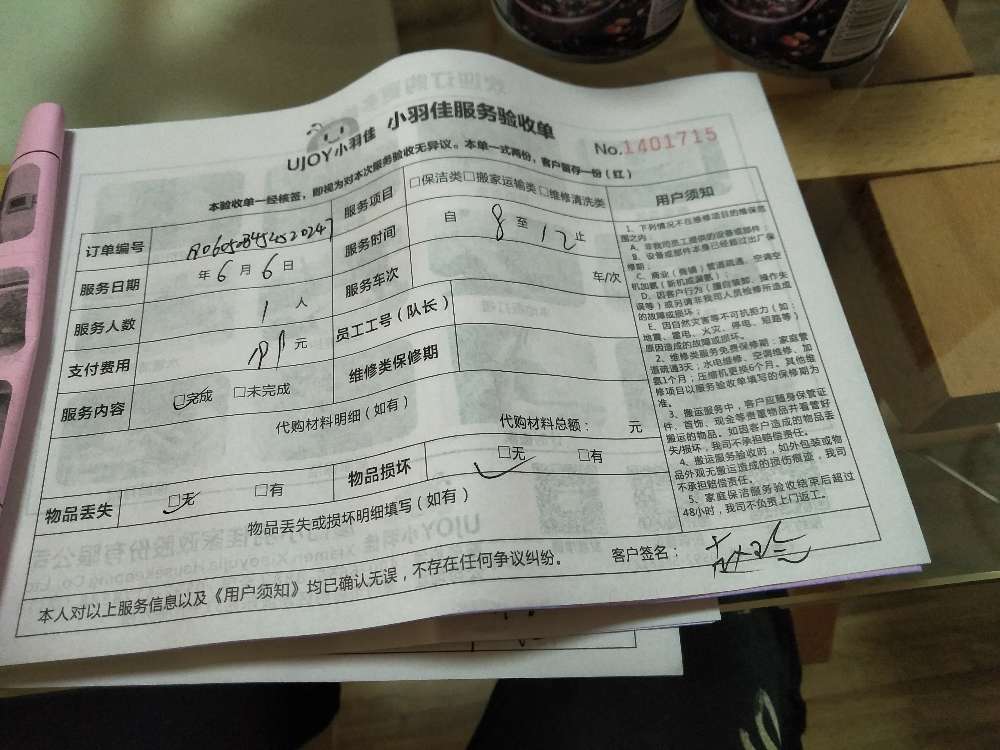 UJOY小羽佳 小羽佳服务验收单
No.1401715
本验收单一经核签，即视为对本次服务验收无异议。本单一式两份，客户留存一份（红）
订单编号
服务项目 □保洁类□搬家运输类□维修清洗类
服务日期 年6月6日
服务时间 自8至12止
服务人数 1人
服务车次 车/次
支付费用 元
员工工号（队长）
服务内容 □完成 □未完成
维修类保修期
代购材料明细（如有）
代购材料总额： 元
物品丢失 □无 □有
物品损坏 □无 □有
物品丢失或损坏明细填写（如有）
用户须知
1、下列情况不在维修项目的维保范
围之内：
A、非我司员工提供的设备或部件；
B、设备或部件本身已经超过出厂保
修期；
C、商业（商铺）管道疏通、空调空
机加氟（新机或漏氟）；
D、因客户行为（擅自装卸、操作失
误等）或另请非我司人员检修所造成
的故障或损坏；
E、因自然灾害等不可抗拒力（如：
地震、雷电、火灾、停电、短路等）
原因造成的故障或损坏。
2、维修类服务免费保修期：家庭管
道疏通3天；水电维修、空调维修、加
氟1个月；压缩机更换6个月。其他维
修项目以服务验收单填写的保修期为
准。
3、搬运服务中，客户应随身保管证
件、首饰、现金等贵重物品并看管好
搬运的物品。如因客户造成的物品丢
失/损坏，我司不承担赔偿责任。
4、搬运服务验收时，如外包装或物
品外观无搬运造成的损伤痕迹，我司
不承担赔偿责任。
5、家庭保洁服务验收结束后超过
48小时，我司不负责上门返工。
本人对以上服务信息以及《用户须知》均已确认无误，不存在任何争议纠纷。 客户签名：